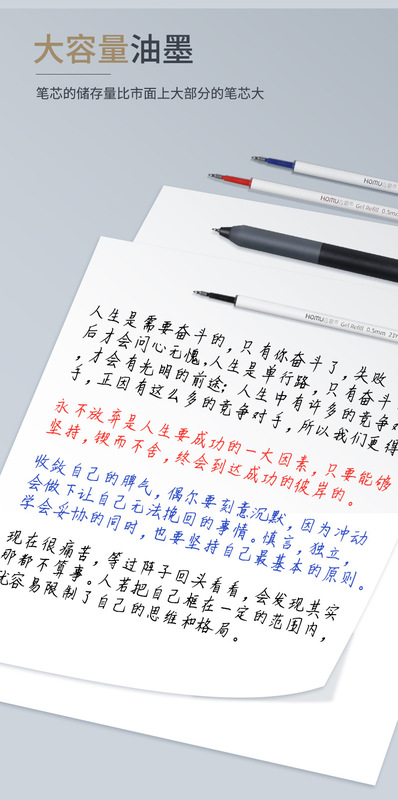 大容量油墨
笔芯的储存量比市面上大部分的笔芯大
HOMU
HOMU
Gel Refill 0.5mm
HOMU
Gel Refill 0.5mm
人生是需要奋斗的，只有你奋斗了，失败
后才会问心无愧，人生是单行路，只有奋斗
，才会有光明的前途；人生中有许多的竞争
手，正因有这么多的竞争对手，所以我们更得
永不放弃是人生要成功的一大因素，只要能够
坚持，锲而不舍，终会到达成功的彼岸的。
收敛自己的脾气，偶尔要刻意沉默，因为冲动
会做下让自己无法挽回的事情。慎言，独立，
学会妥协的同时，也要坚持自己最基本的原则。
现在很痛苦，等过阵子回头看看，会发现其实
那都不算事。人若把自己框在一定的范围内，
容易限制了自己的思维和格局。